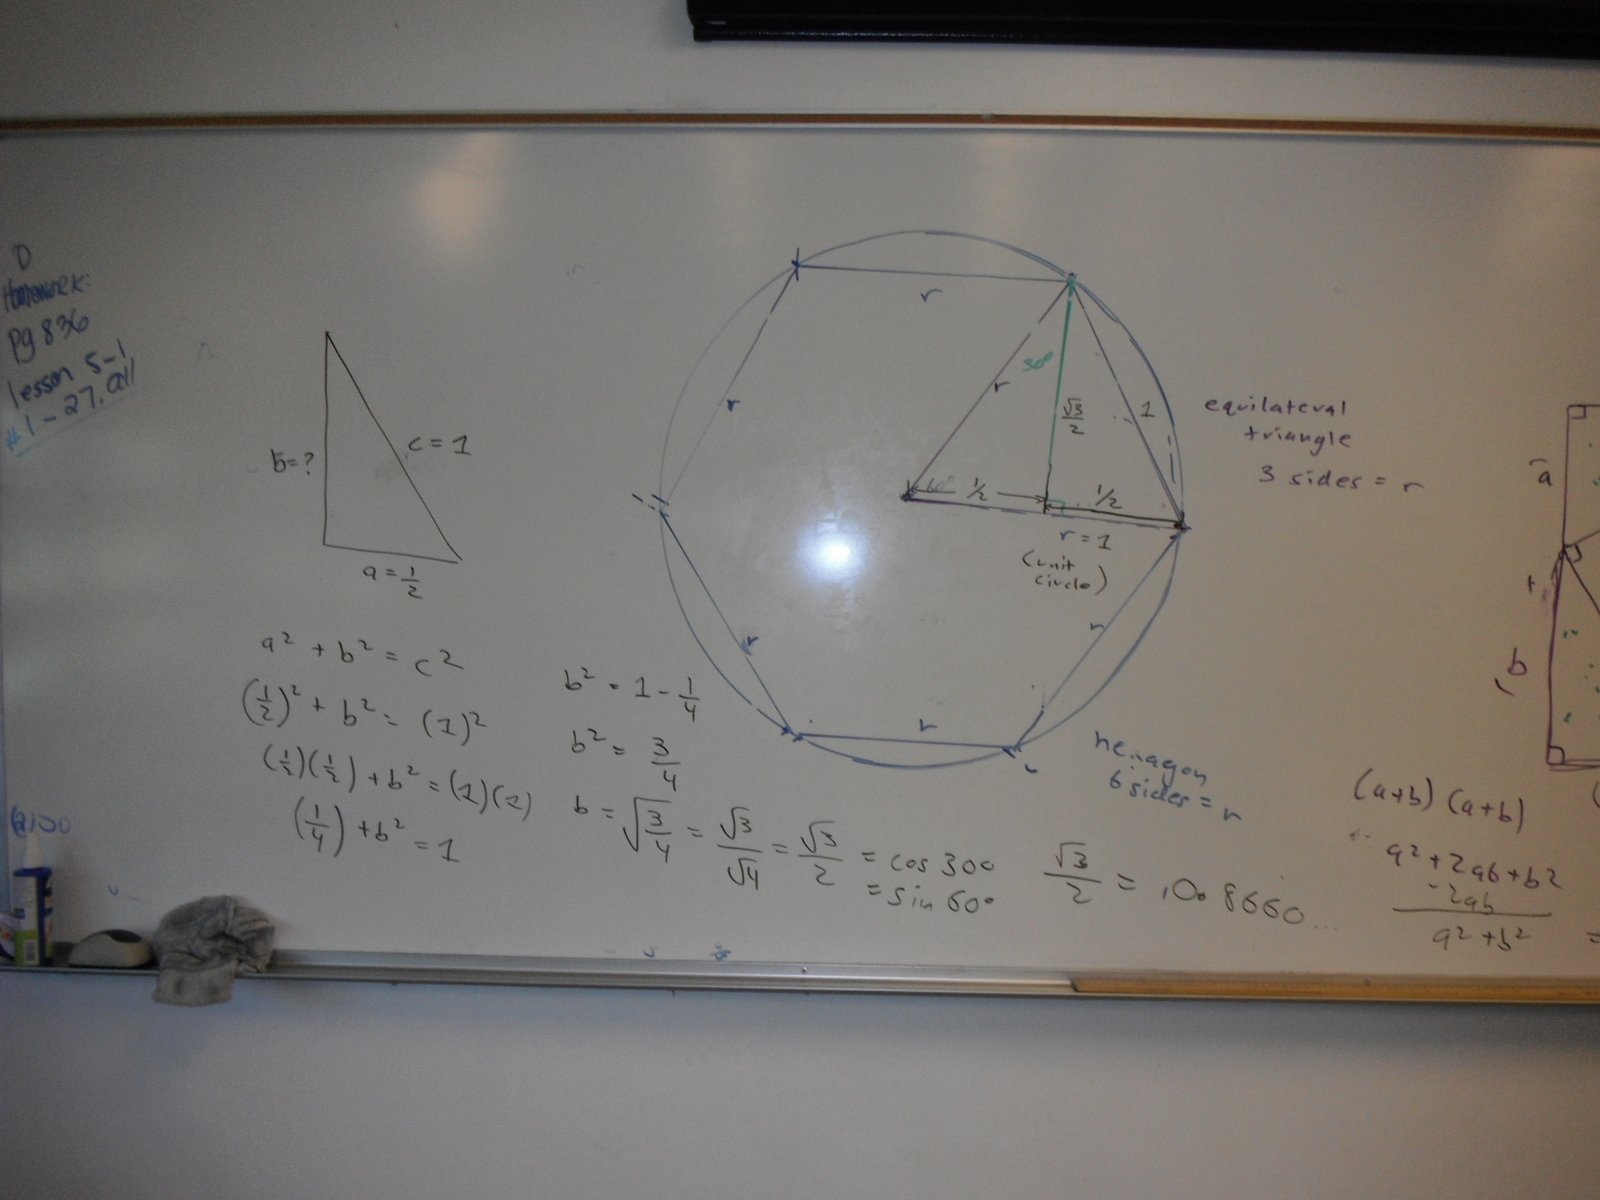 D
Homework:
pg 836
lesson 5-1
#1-27, all
b=?
c=1
a=1/2
a² + b² = c²
(1/2)² + b² = (1)²
(1/2)(1/2) + b² = (1)(1)
(1/4) + b² = 1
b² = 1 - 1/4
b² = 3/4
b = √(3/4) = √3/√4 = √3/2 = cos 30°
= sin 60°
√3/2 = 0.8660...
r
r
r
r
r
r
30°
√3/2
1
60°
1/2
1/2
r=1
(unit
circle)
equilateral
triangle
3 sides = r
hexagon
6 sides = r
a
b
(a+b)(a+b)
a²+2ab+b²
-2ab
a²+b²
=